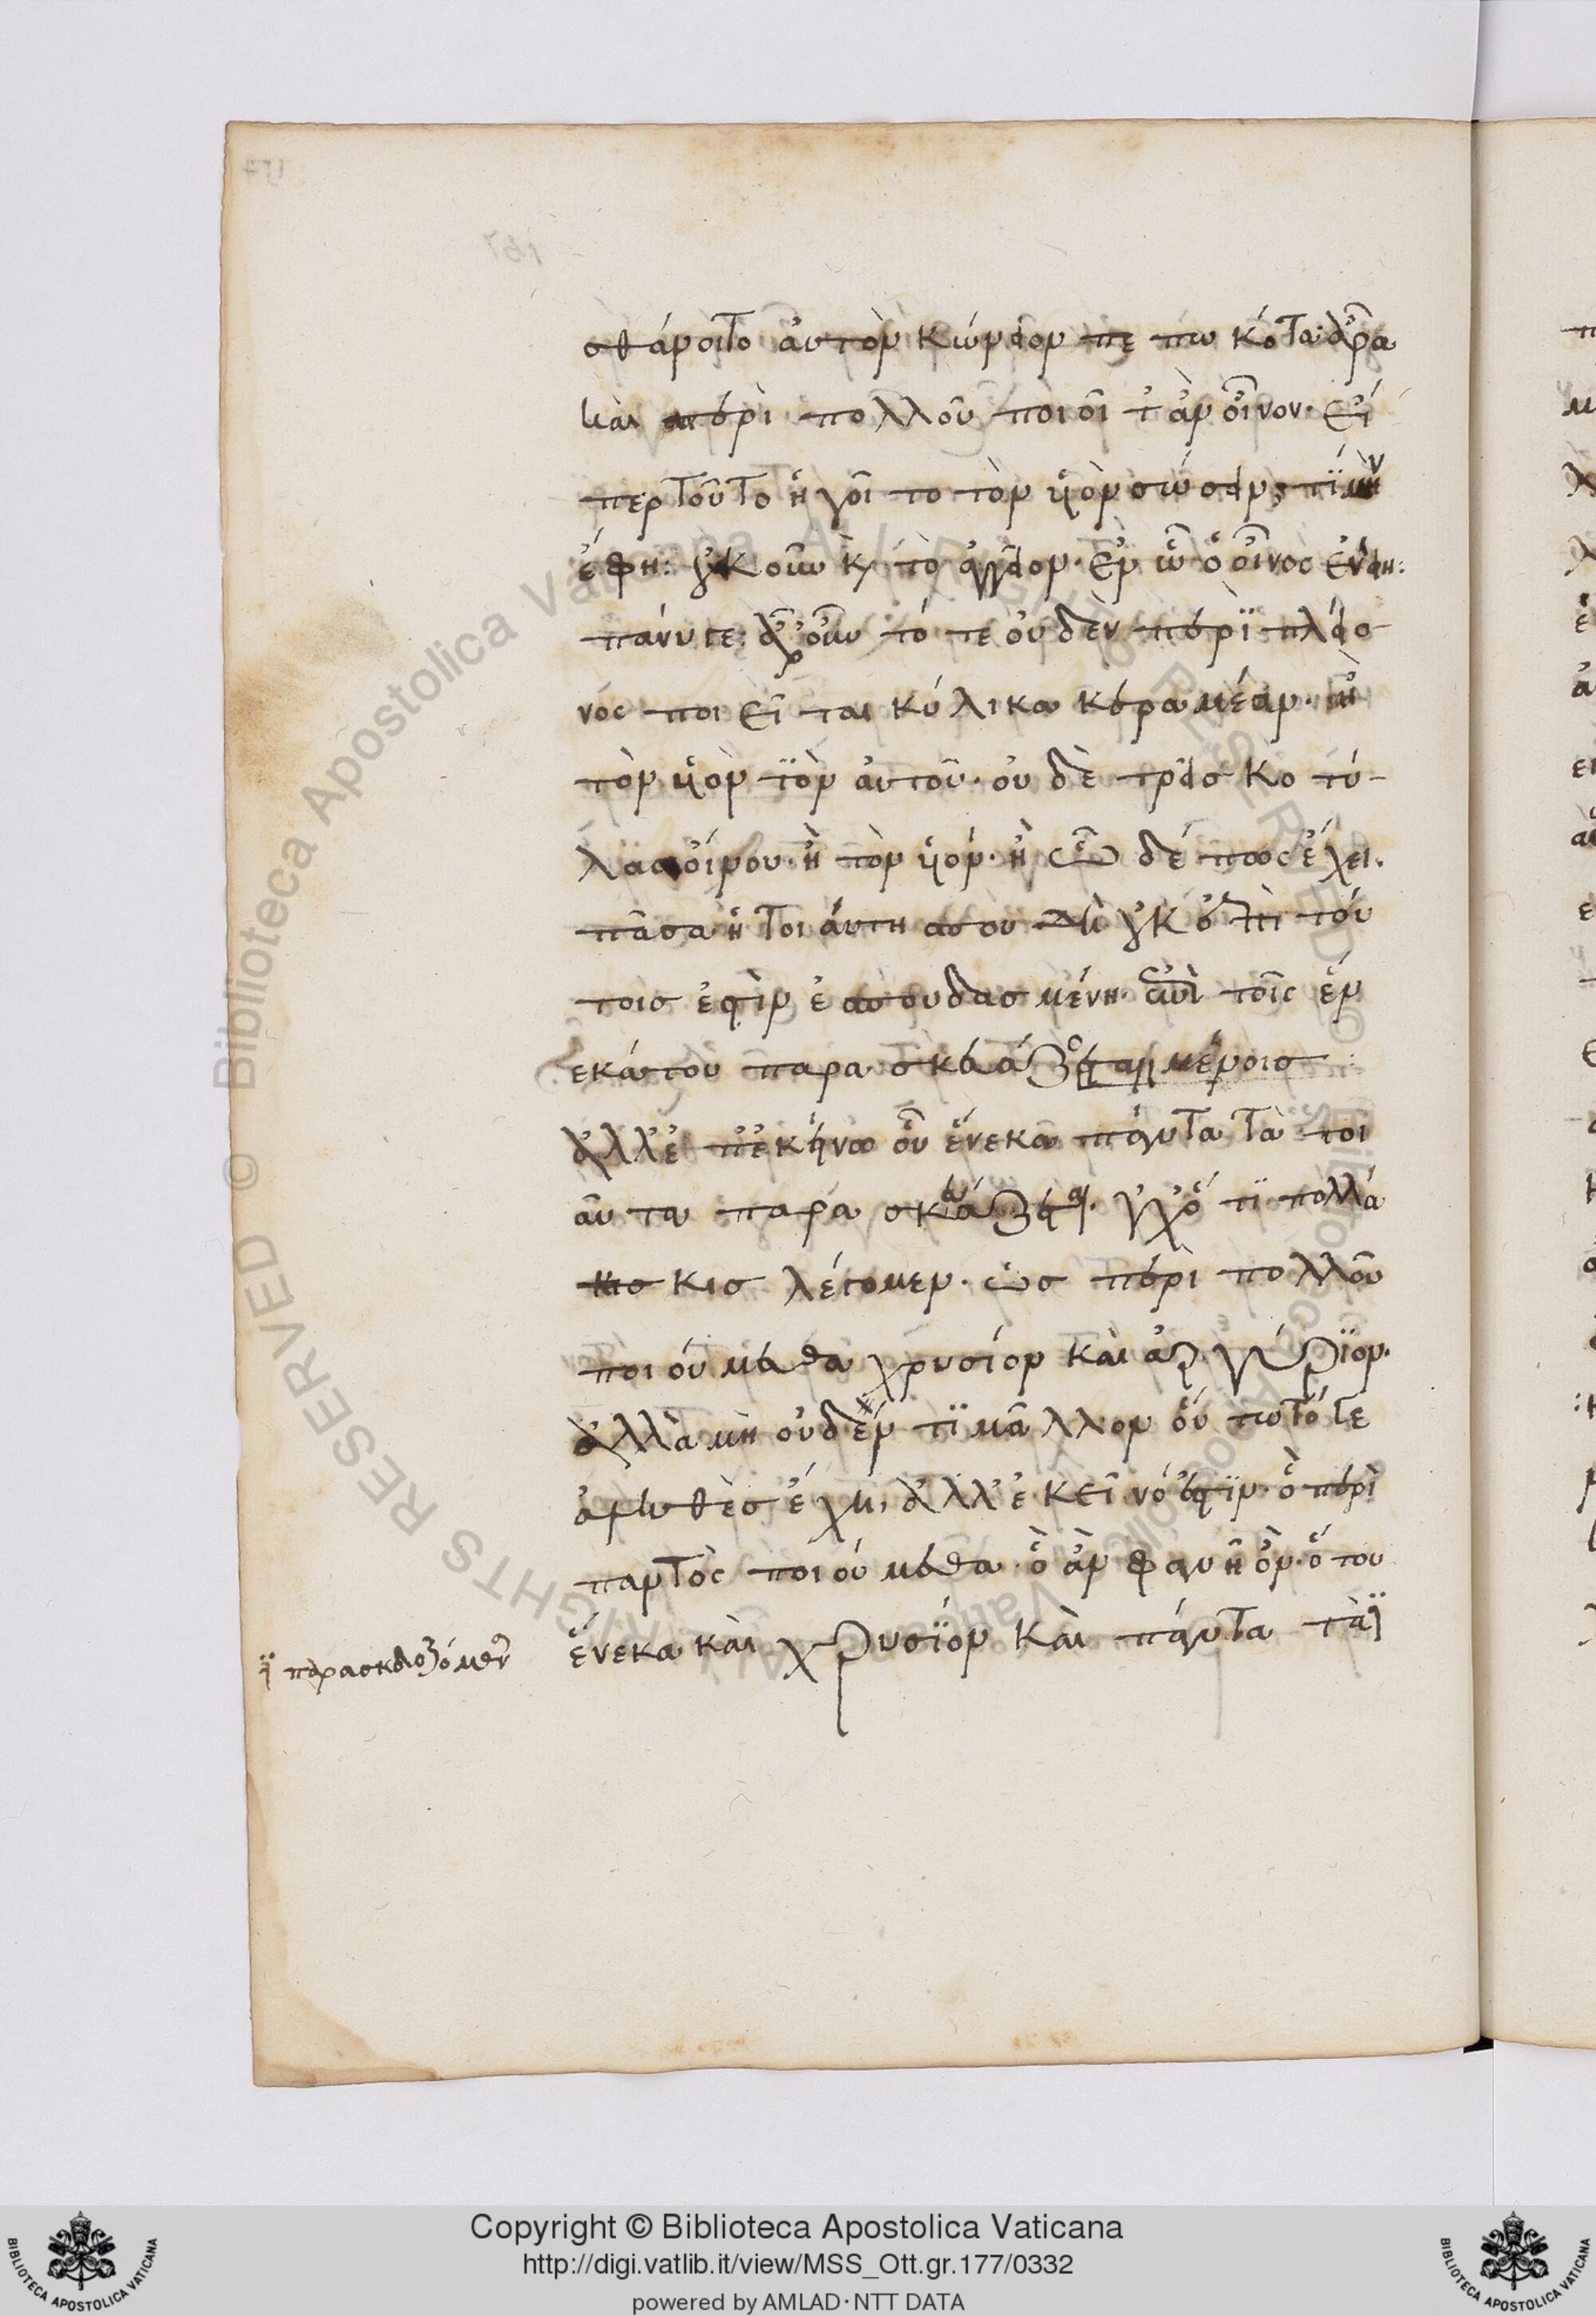 σθάνοιτο αὐτὸν κώνειον πεπωκότα· ἆρα
καὶ περὶ πολλοῦ ποιοῖτ' ἂν οἶνον· εἴ
περ τοῦτο ἡγοῖτο τὸν ὑὸν σώσειν; τί μὴν
ἔφη: οὐκοῦν καὶ τὸ ἀγγεῖον· ἐν ᾧ ὁ οἶνος ἐνείη:
πάνυ γε: ἆρ' οὖν τότε οὐδὲν περὶ πλείο
νος ποιεῖται κύλικα κεραμέαν· ἢ
τὸν ὑὸν τὸν αὐτοῦ· οὐδὲ τρεῖς κοτύ-
λας οἴνου· ἢ τὸν ὑόν· ἢ ὧδέ πως ἔχει.
πᾶσα ἡ τοιαύτη σπουδὴ οὐκ ἐπὶ τού
τοις ἐστὶν ἐσπουδασμένη· ἐπὶ τοῖς ἕν
εκά του παρασκευαζομένοις
ἀλλ' ἐπ' ἐκείνῳ οὗ ἕνεκα πάντα τὰ τοι
αῦτα παρασκευάζεται. οὐχ ὅτι πολλά
κις λέγομεν· ὡς περὶ πολλοῦ
ποιούμεθα χρυσίον καὶ ἀργύριον.
ἀλλὰ μὴ οὐδέν τι μᾶλλον οὕτω τό γε
ἀληθὲς ἔχῃ, ἀλλ' ἐκεῖνό ἐστιν· ὃ περὶ
παντὸς ποιούμεθα· ὃ ἂν φανῇ ὄν· ὅτου
ἕνεκα καὶ χρυσίον καὶ πάντα τὰ
παρασκευαζόμενα
© Biblioteca Apostolica Vaticana
Copyright © Biblioteca Apostolica Vaticana
http://digi.vatlib.it/view/MSS_Ott.gr.177/0332
powered by AMLAD·NTT DATA
BIBLIOTECA APOSTOLICA VATICANA
BIBLIOTECA APOSTOLICA VATICANA